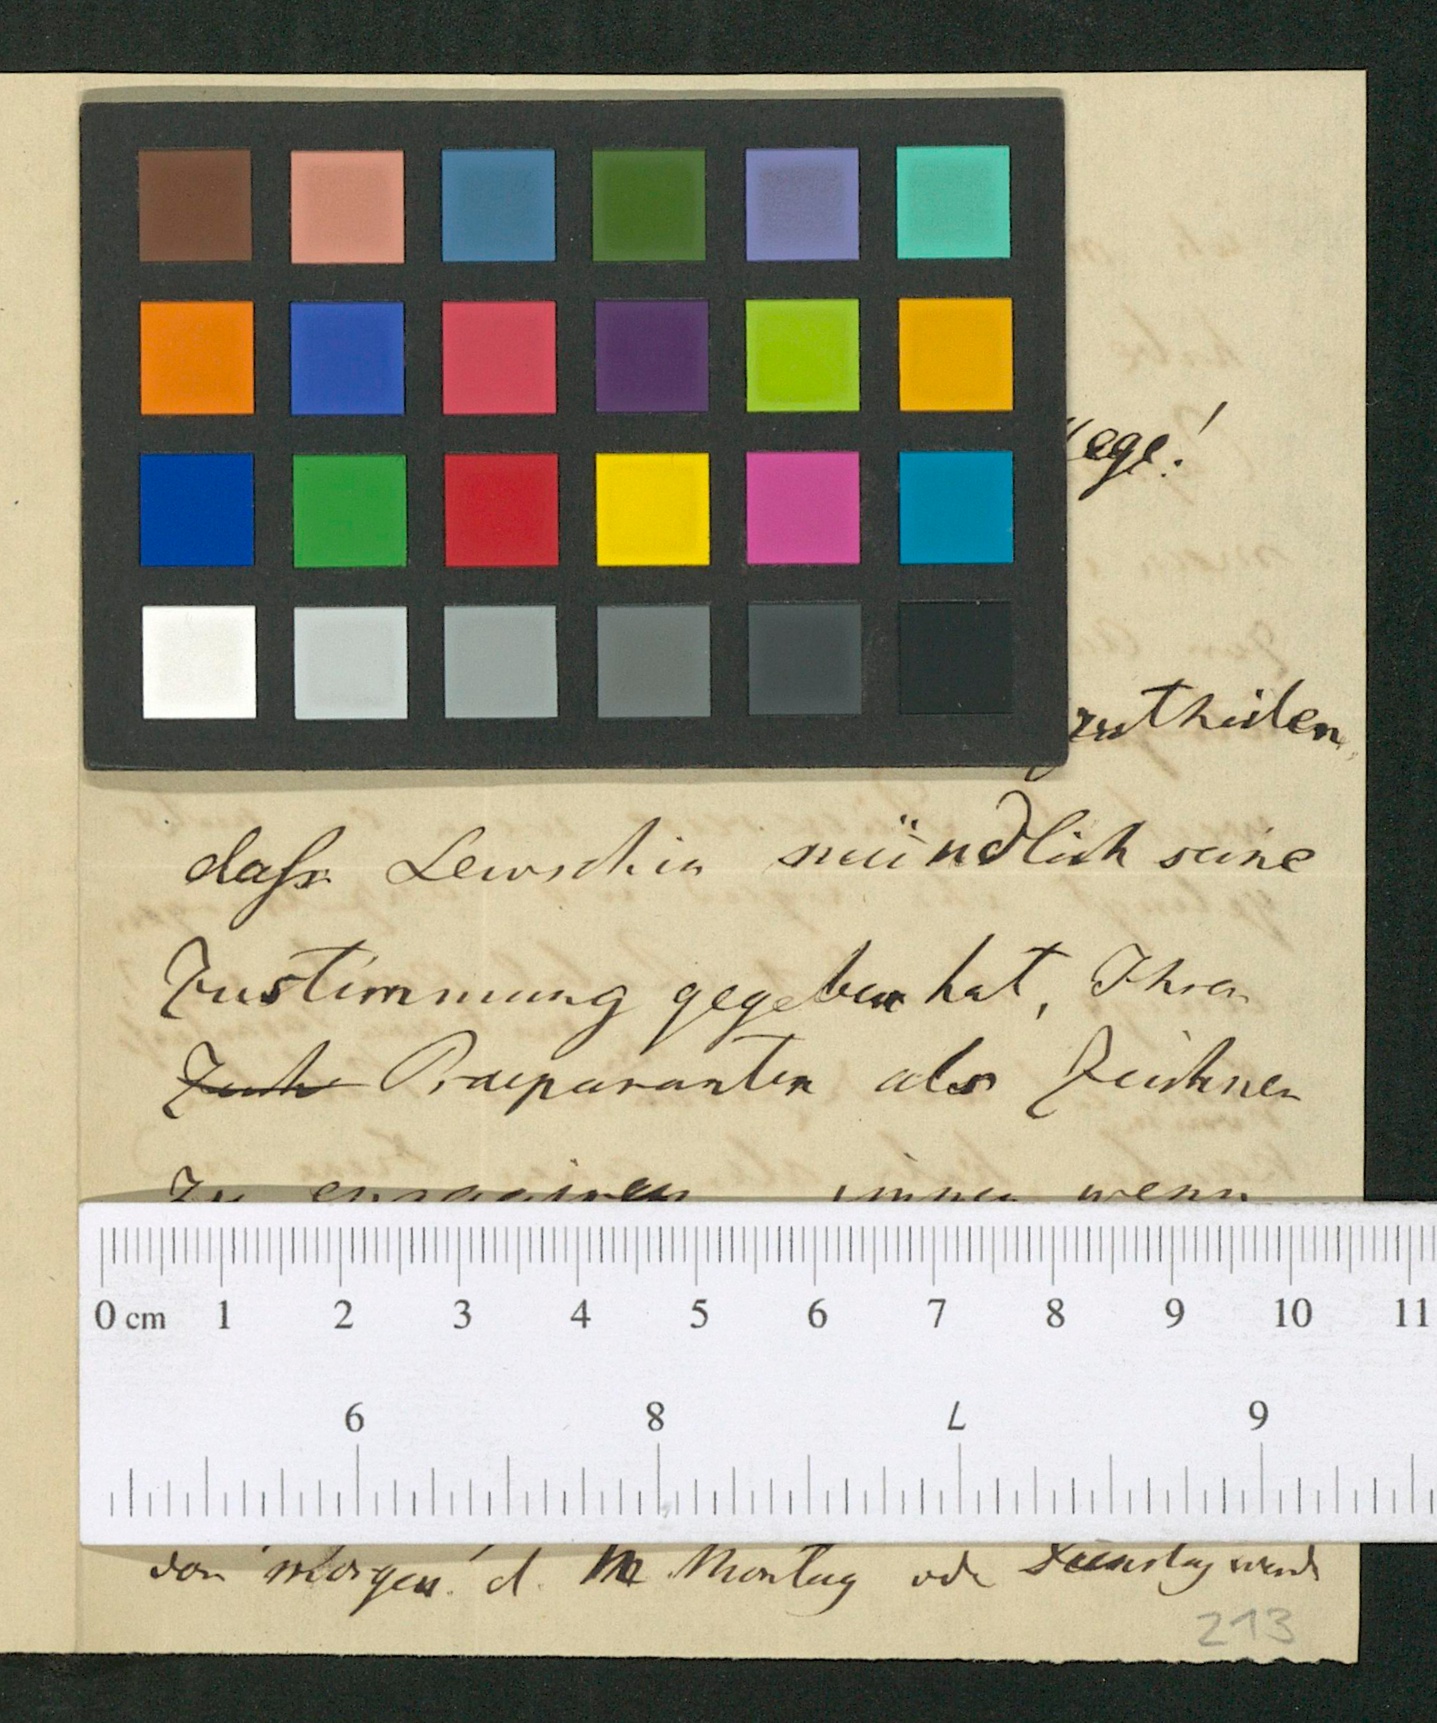 lege!
zutheilen,
dass Lewschin mündlich seine
Zustimmung gegeben hat, Ihren
Praeparanten als Zeichner
zu engagiren immer wenn
0 cm 1 2 3 4 5 6 7 8 9 10 11
6 8 7 9
von morgen d. Montag oder Dienstag werde
213